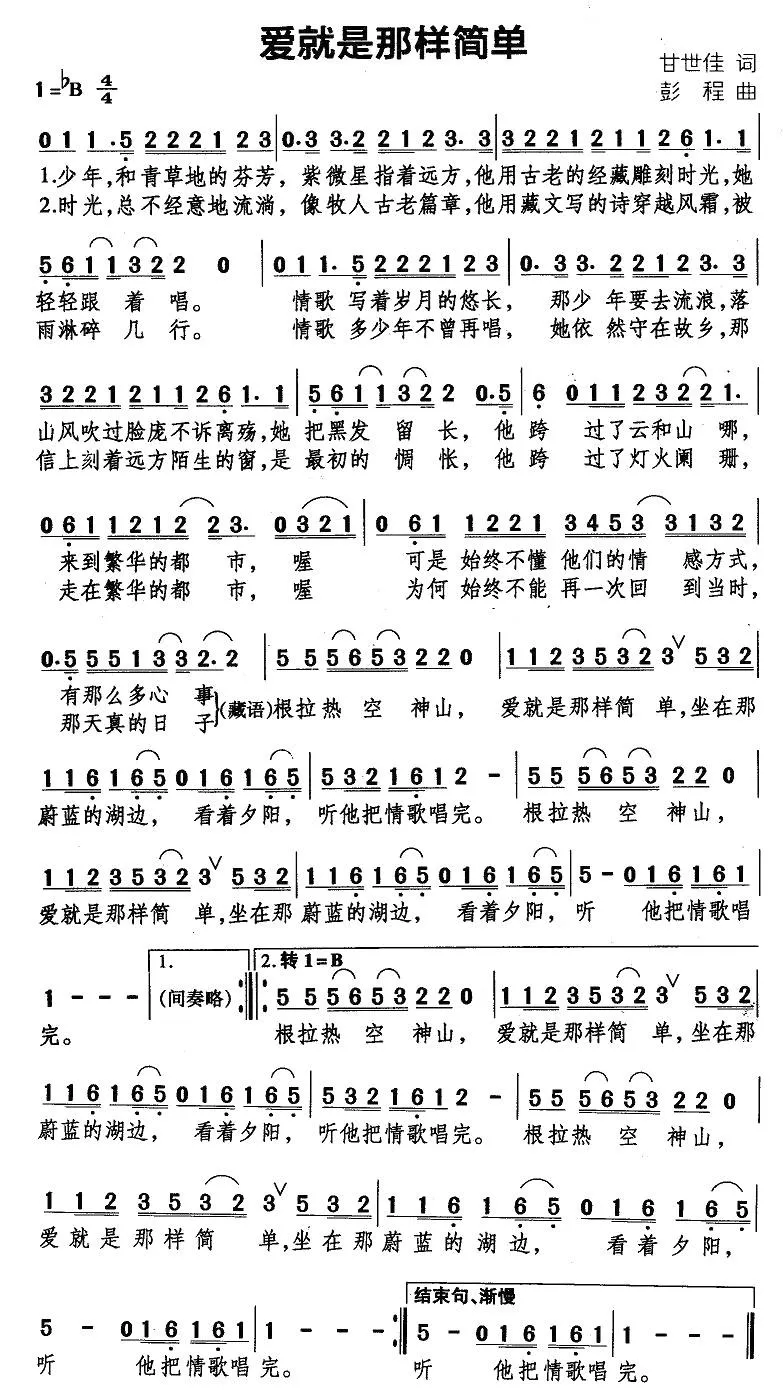 爱就是那样简单
甘世佳 词
1=♭B 4/4
彭 程 曲
0 1 1 1. 5 2 2 2 1 2 3 | 0. 3 3. 2 2 1 2 3. 3 | 3 2 2 1 2 1 1 2 6 1. 1
1.少年,和青草地的芬芳, 紫微星指着远方,他用古老的经藏雕刻时光,她
2.时光,总不经意地流淌, 像牧人古老篇章,他用藏文写的诗穿越风霜,被
5 6 1 1 3 2 2 2 0 | 0 1 1. 5 2 2 2 1 2 3 | 0. 3 3. 2 2 1 2 3. 3
轻轻跟 着 唱。 情歌 写着岁月的悠长, 那少 年要去流浪,落
雨淋碎 几 行。 情歌 多少年不曾再唱, 她依 然守在故乡,那
3 2 2 1 2 1 1 2 6 1. 1 | 5 6 1 1 3 2 2 0. 5 | 6 0 1 1 2 3 2 2 1.
山风吹过脸庞不诉离殇,她 把黑发 留 长, 他 跨 过了云和山 哪,
信上刻着远方陌生的窗,是 最初的 惆 怅, 他 跨 过了灯火阑 珊,
0 6 1 1 2 1 2 2 3. 0 3 2 1 | 0 6 1 1 2 2 1 3 4 5 3 3 1 3 2
来到繁华的都 市, 喔 可是 始终不懂 他们的情 感方式,
走在繁华的都 市, 喔 为何 始终不能 再一次回 到当时,
0. 5 5 5 1 3 3 2. 2 | 5 5 5 6 5 3 2 2 0 | 1 1 2 3 5 3 2 3 ∨ 5 3 2
有那么多心 事
那天真的日 子
(藏语)根拉热 空 神山, 爱就是那样简 单,坐在那
1 1 6 1 6 5 0 1 6 1 6 5 | 5 3 2 1 6 1 2 - | 5 5 5 6 5 3 2 2 0
蔚蓝的湖边, 看着夕阳, 听他把情歌唱完。 根拉热 空 神山,
1 1 2 3 5 3 2 3 ∨ 5 3 2 | 1 1 6 1 6 5 0 1 6 1 6 5 | 5 - 0 1 6 1 6 1
爱就是那样简 单,坐在那 蔚蓝的湖边, 看着夕阳, 听 他把情歌唱
1. 2.转1=B
1 - - - | (间奏略) :‖: 5 5 5 6 5 3 2 2 0 | 1 1 2 3 5 3 2 3 ∨ 5 3 2
完。 根拉热 空 神山, 爱就是那样简 单,坐在那
1 1 6 1 6 5 0 1 6 1 6 5 | 5 3 2 1 6 1 2 - | 5 5 5 6 5 3 2 2 0
蔚蓝的湖边, 看着夕阳, 听他把情歌唱完。 根拉热 空 神山,
1 1 2 3 5 3 2 3 ∨ 5 3 2 | 1 1 6 1 6 5 0 1 6 1 6 5
爱就是那样简 单,坐在那蔚蓝的湖边, 看着夕阳,
结束句、渐慢
5 - 0 1 6 1 6 1 | 1 - - - :‖ 5 - 0 1 6 1 6 1 | 1 - - - ‖
听 他把情歌唱 完。 听 他把情歌唱 完。